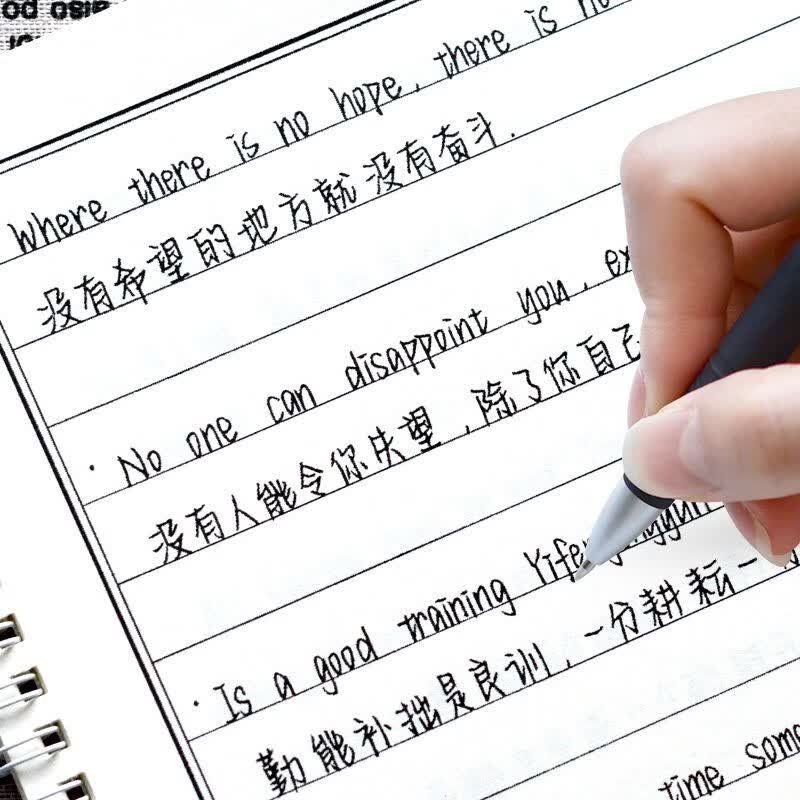 Where there is no hope, there is no
没有希望的地方就没有奋斗.
· No one can disappoint you, ex
没有人能令你失望,除了你自己
· Is a good training Yife
勤能补拙是良训,一分耕耘一
time some